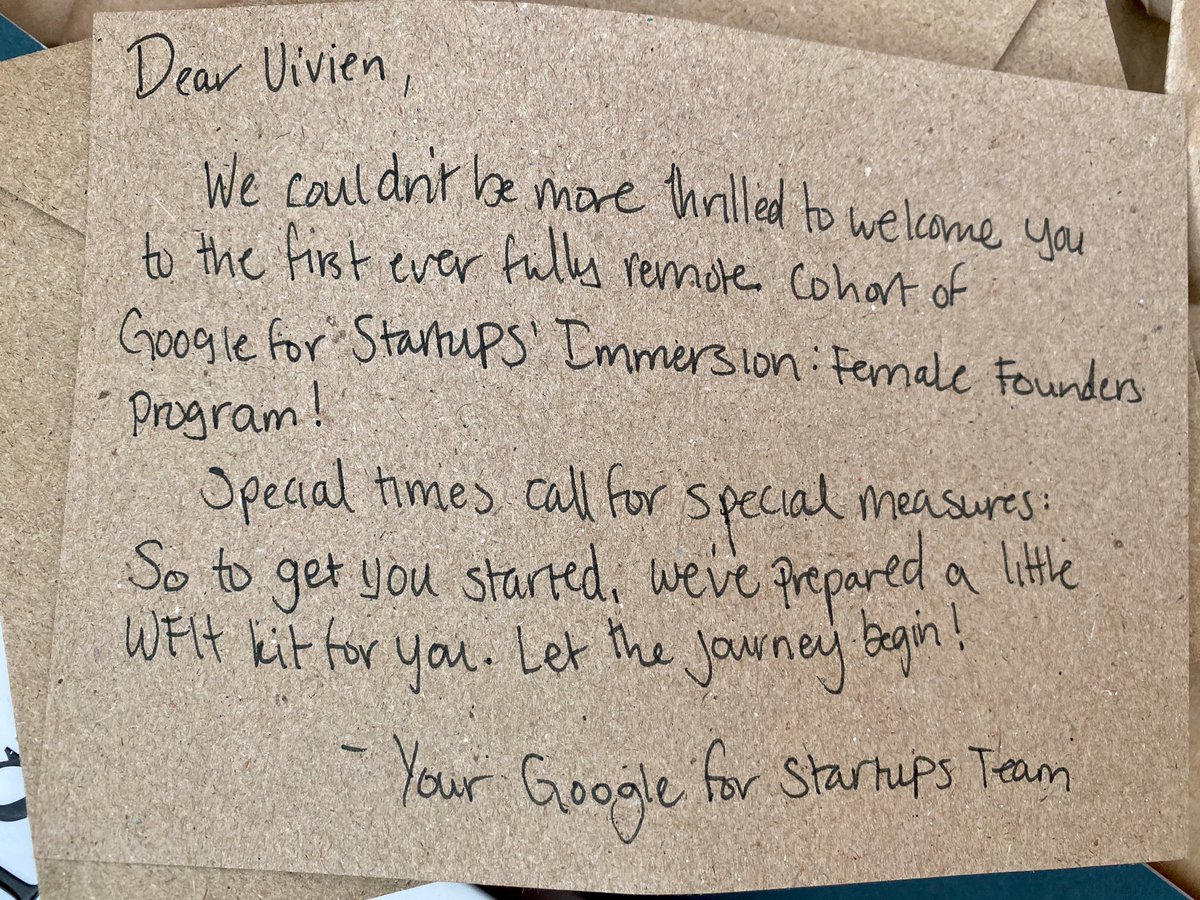 Dear Vivien,
We couldn't be more thrilled to welcome you
to the first ever fully remote cohort of
Google for Startups' Immersion: Female Founders
program!
Special times call for special measures:
So to get you started, we've prepared a little
WFH kit for you. Let the journey begin!
- Your Google for Startups Team